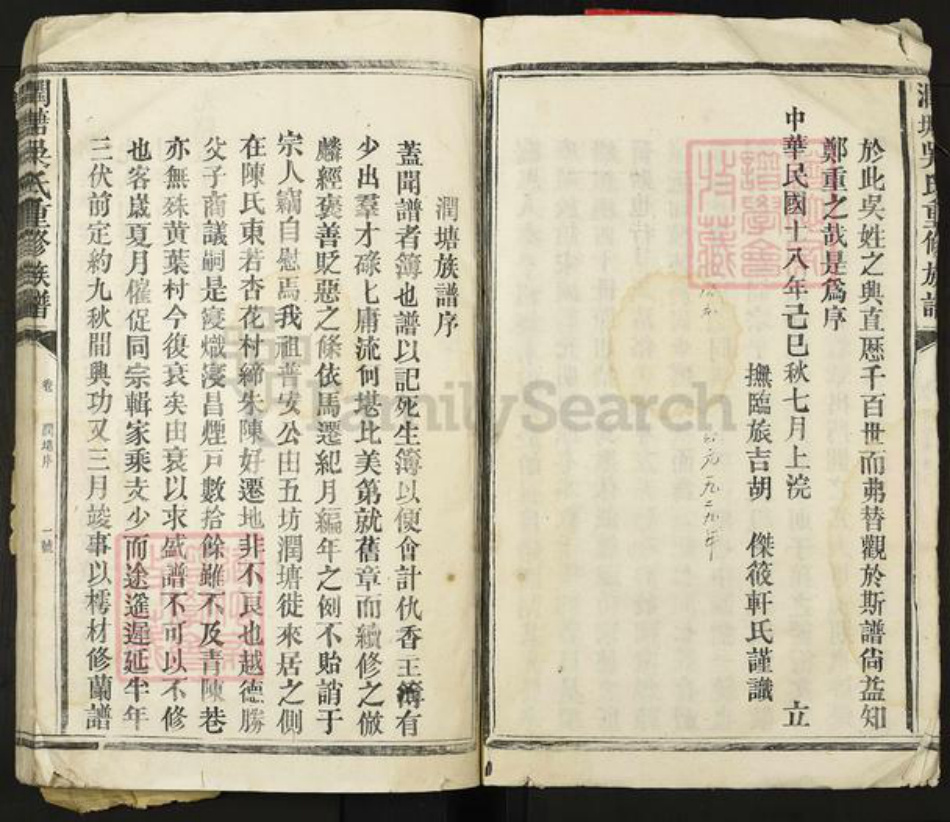 於此吳姓之興直歷千百世而弗替觀於斯譜尙益知
鄭重之哉是爲序
中華民國十八年己巳秋七月上浣 立
撫臨旅吉胡 傑筱軒氏謹識
潤塘吳氏重修族譜
一九二九年
潤塘族譜序
蓋聞譜者簿也譜以記死生簿以便會計仇香王簿有
少出羣才碌匕庸流何堪比美第就舊章而續修之倣
麟經褒善貶惡之條依馬遷紀月編年之例不貽誚于
宗人竊自慰焉我祖普安公由五坊潤塘徙來居之側
在陳氏東若杏花村締朱陳好遷地非不良也越德勝
父子商議嗣是寖熾寖昌煙戸數拾餘雖不及青陳巷
亦無殊黄葉村今復衰矣由衰以求盛譜不可以不修
也客歲夏月催促同宗輯家乘支少而途遙遲延半年
三伏前定約九秋開興功又三月竣事以樗材修蘭譜
潤塘吳氏重修族譜
卷
潤塘序
一號
FamilySearch